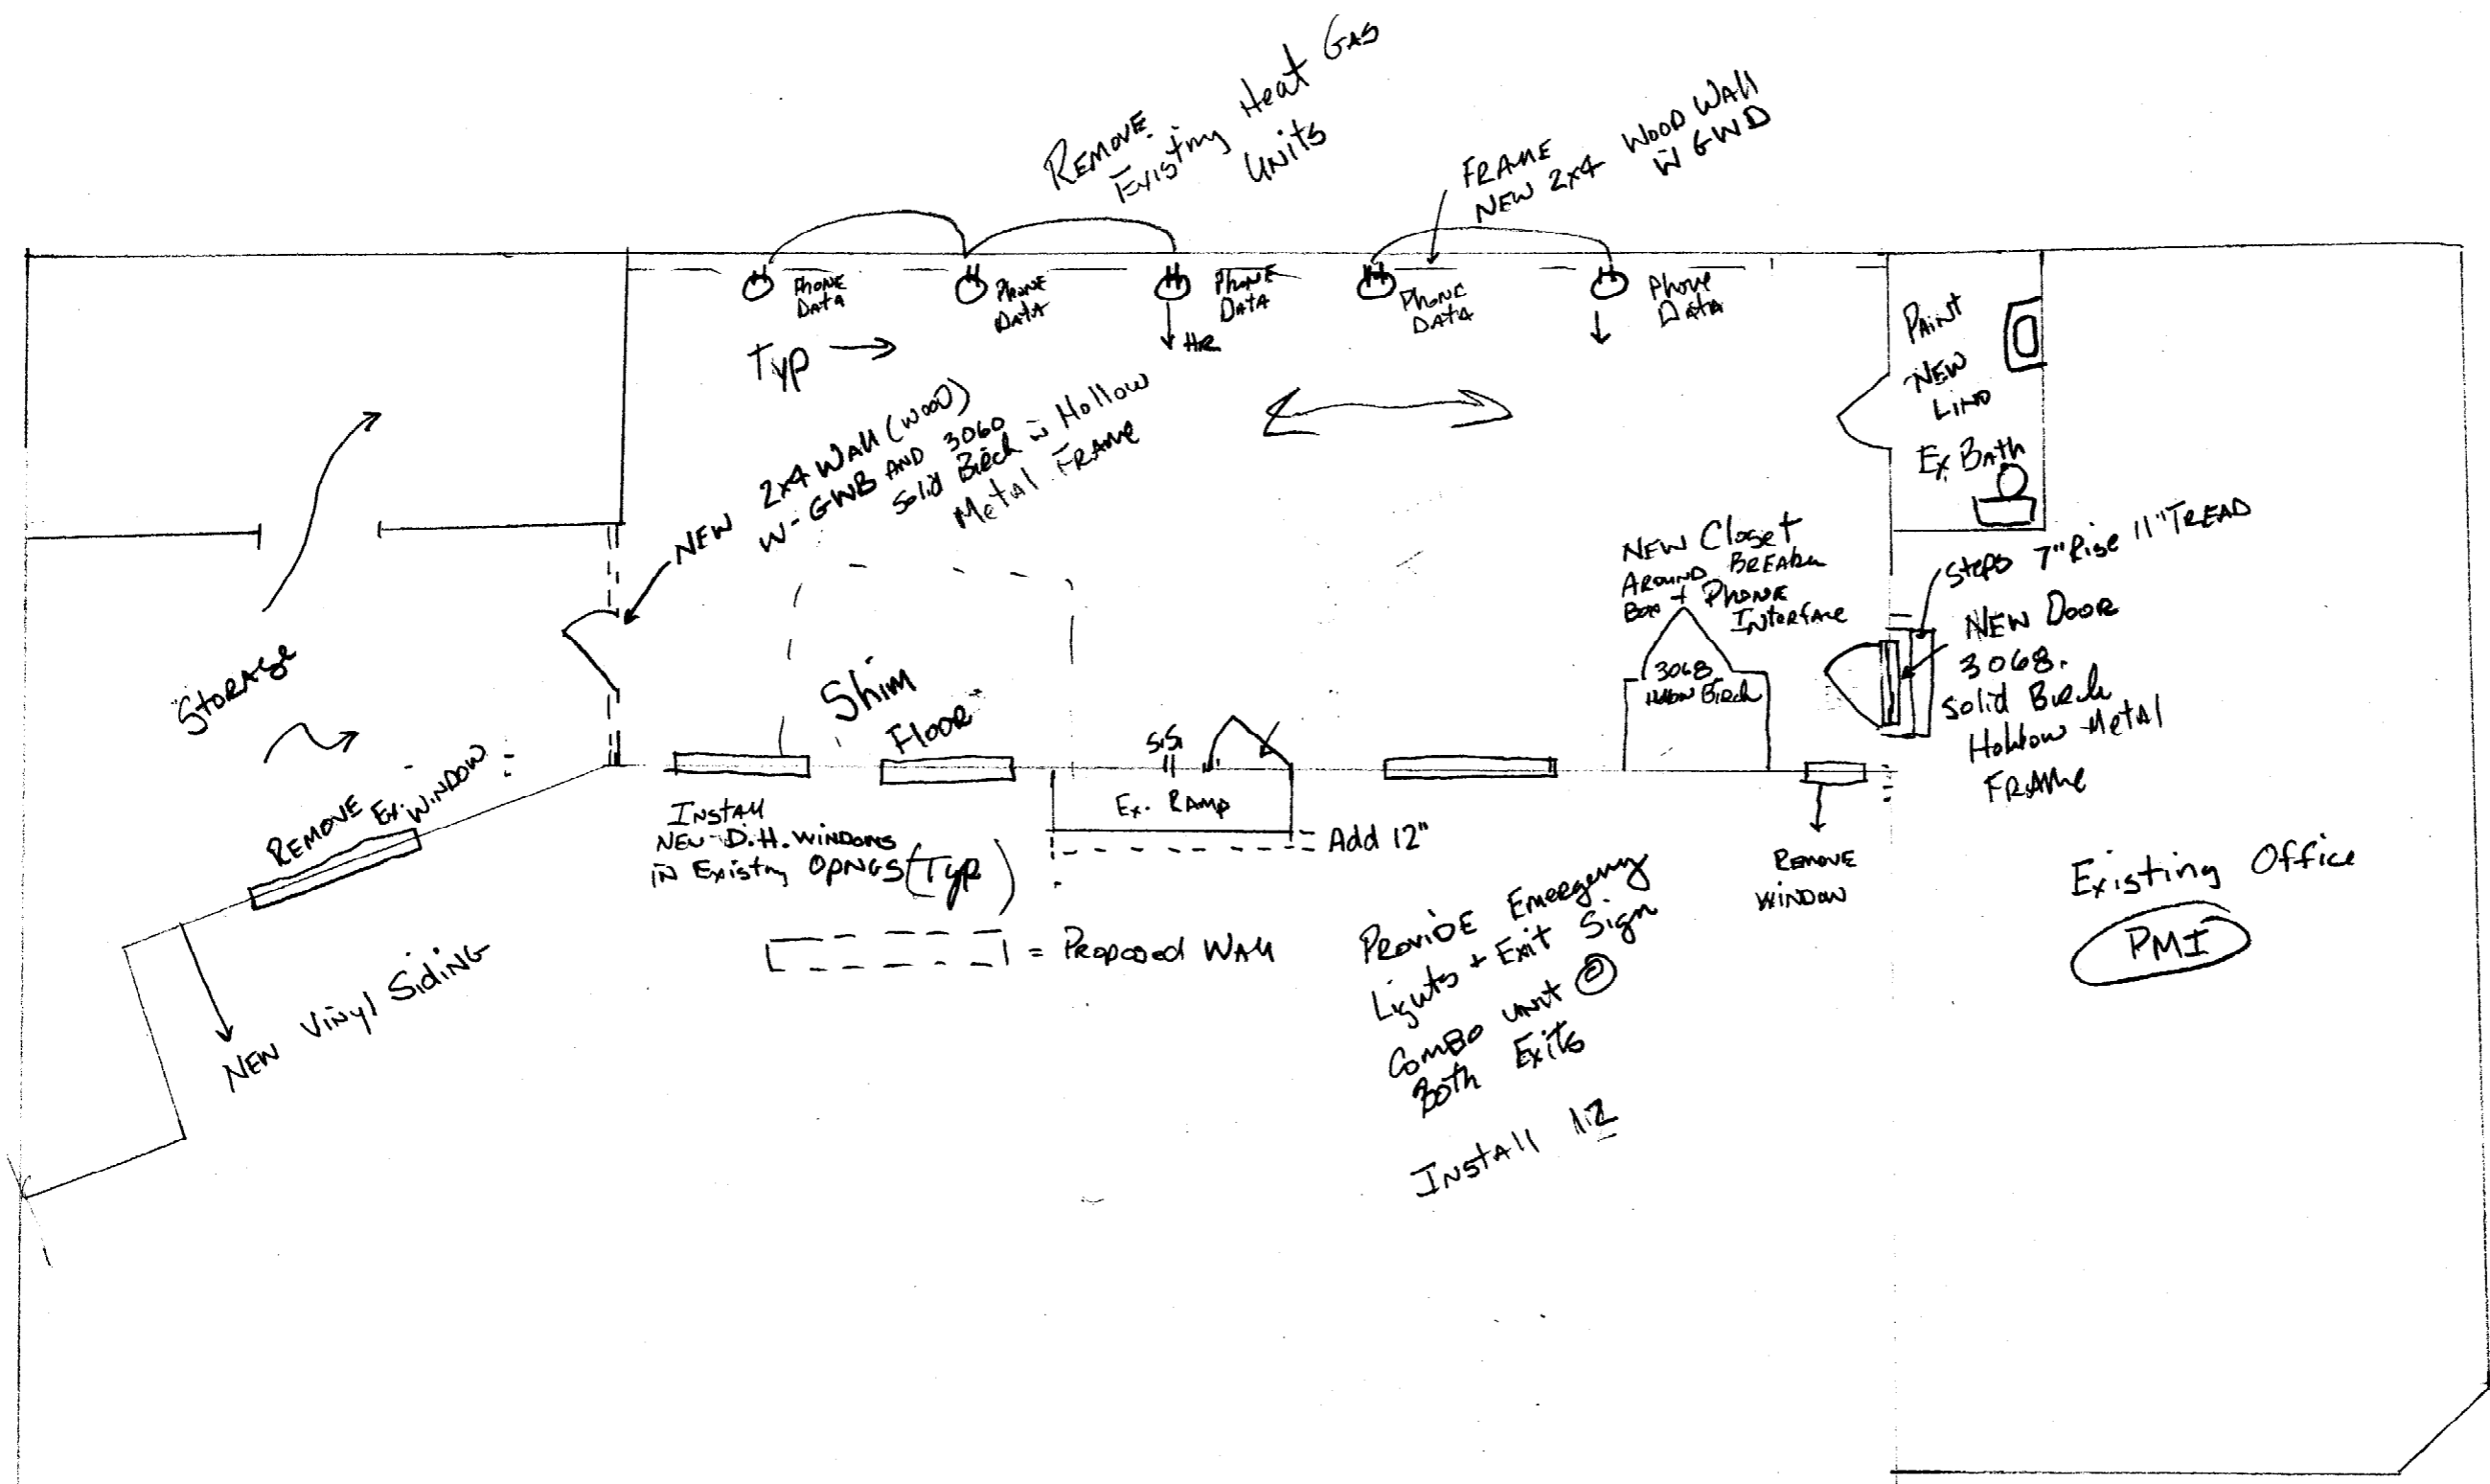 REMOVE
Existing Heat Gas
Units
FRAME
NEW 2x4 WOOD WAll
W GWD
PhONE
Data
PhONE
Data
PhONE
DatA
PhONE
DATA
Phone
Data
Typ
HR
PAiNT
NEW
LINO
Ex Bath
NEW 2x4 WAll (WOOD)
W-GWB AND 3060
Solid Birch w Hollow
Metal FRAME
NEW Closet
AROUND BREAker
Box + PhONE
INterfAce
3068
Hollow Birch
Steps 7" Rise 11" TREAD
NEW DOOR
3068.
Solid Birch
Hollow Metal
FRAMe
StORAge
Shim
Floor
REMOVE Ex. WiNDOW
S.S.
Ex. RAMP
Add 12"
INStAll
NEW D.H. WiNDOWS
iN Existing OPNGS (Typ)
REMOVE
WiNDOW
Existing Office
PMI
= Proposed WAll
PROVIDE Emergency
Lights + Exit Sign
COMBO UNit @
Both Exits
INStAll 12
NEW Vinyl SidiNG